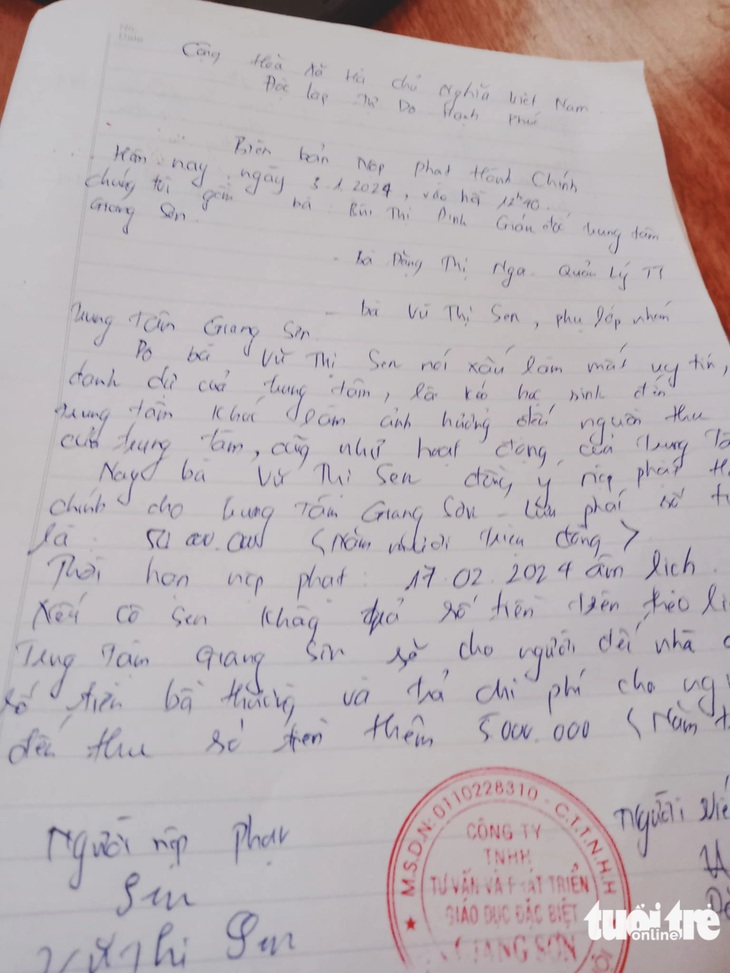 Cộng Hoà Xã Hội chủ Nghĩa Việt Nam
Độc lập Tự Do Hạnh Phú
Biên bản Nộp phạt Hành Chính
Hôm nay ngày 3.1.2024, vào hồi 12h40.
chúng tôi gồm bà Bùi Thị Dinh Giám đốc trung tâm
Giang Sơn.
Bà Đặng Thị Nga Quản Lý TT
- bà Vũ Thị Sen, phụ lớp nhóm
trung tâm Giang Sơn.
Do bà Vũ Thị Sen nói xấu làm mất uy tín,
danh dự của trung tâm, lôi kéo học sinh đến
trung tâm khác làm ảnh hưởng đến nguồn thu
của trung tâm, cũng như hoạt động của Trung Tâ
Nay bà Vũ Thị Sen đồng ý nộp phạt
chính cho trung Tâm Giang Sơn số
là: 50.000.000 <Năm mươi triệu đồng>
Thời hạn nộp phạt: 17.02.2024 âm lịch.
Nếu cô Sen không trả số tiền trên theo
Trung Tâm Giang Sơn sẽ cho người đến nhà
số tiền bồi thường và trả chi phí cho
đến thu số tiền thêm 5000.000 <Năm
Người nộp phạt
Sen
Vũ Thị Sen
Người
M.S.D.N: 0110228310 - C.T.T.N.H.H
CÔNG TY
TNHH
TƯ VẤN VÀ PHÁT TRIỂN
GIÁO DỤC ĐẶC BIỆT
GIANG SƠN
tuổi trẻ
online